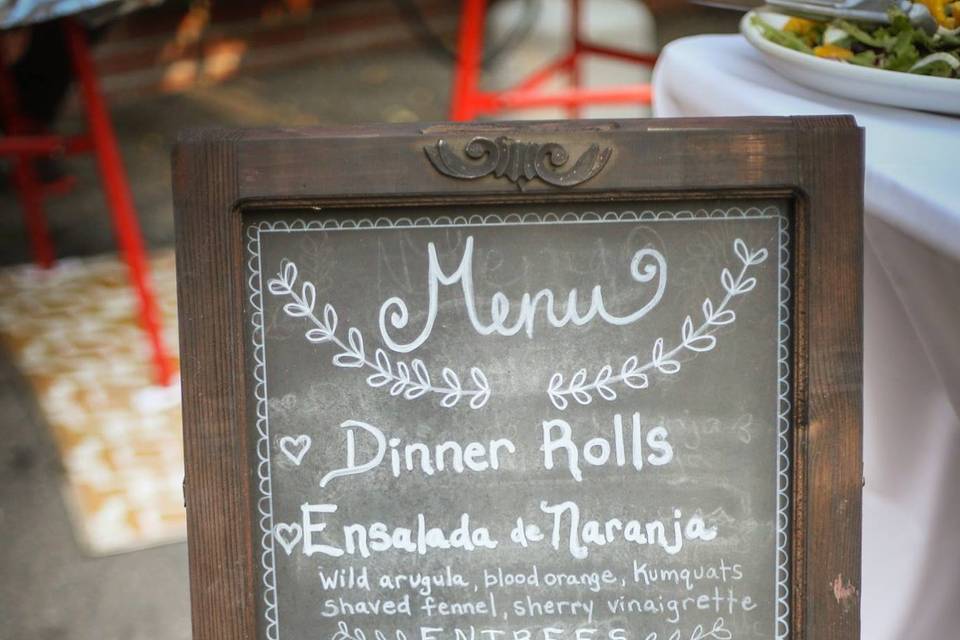 Menu
Dinner Rolls
Ensalada de Naranja
Wild arugula, blood orange, Kumquats
shaved fennel, sherry vinaigrette
ENTREES